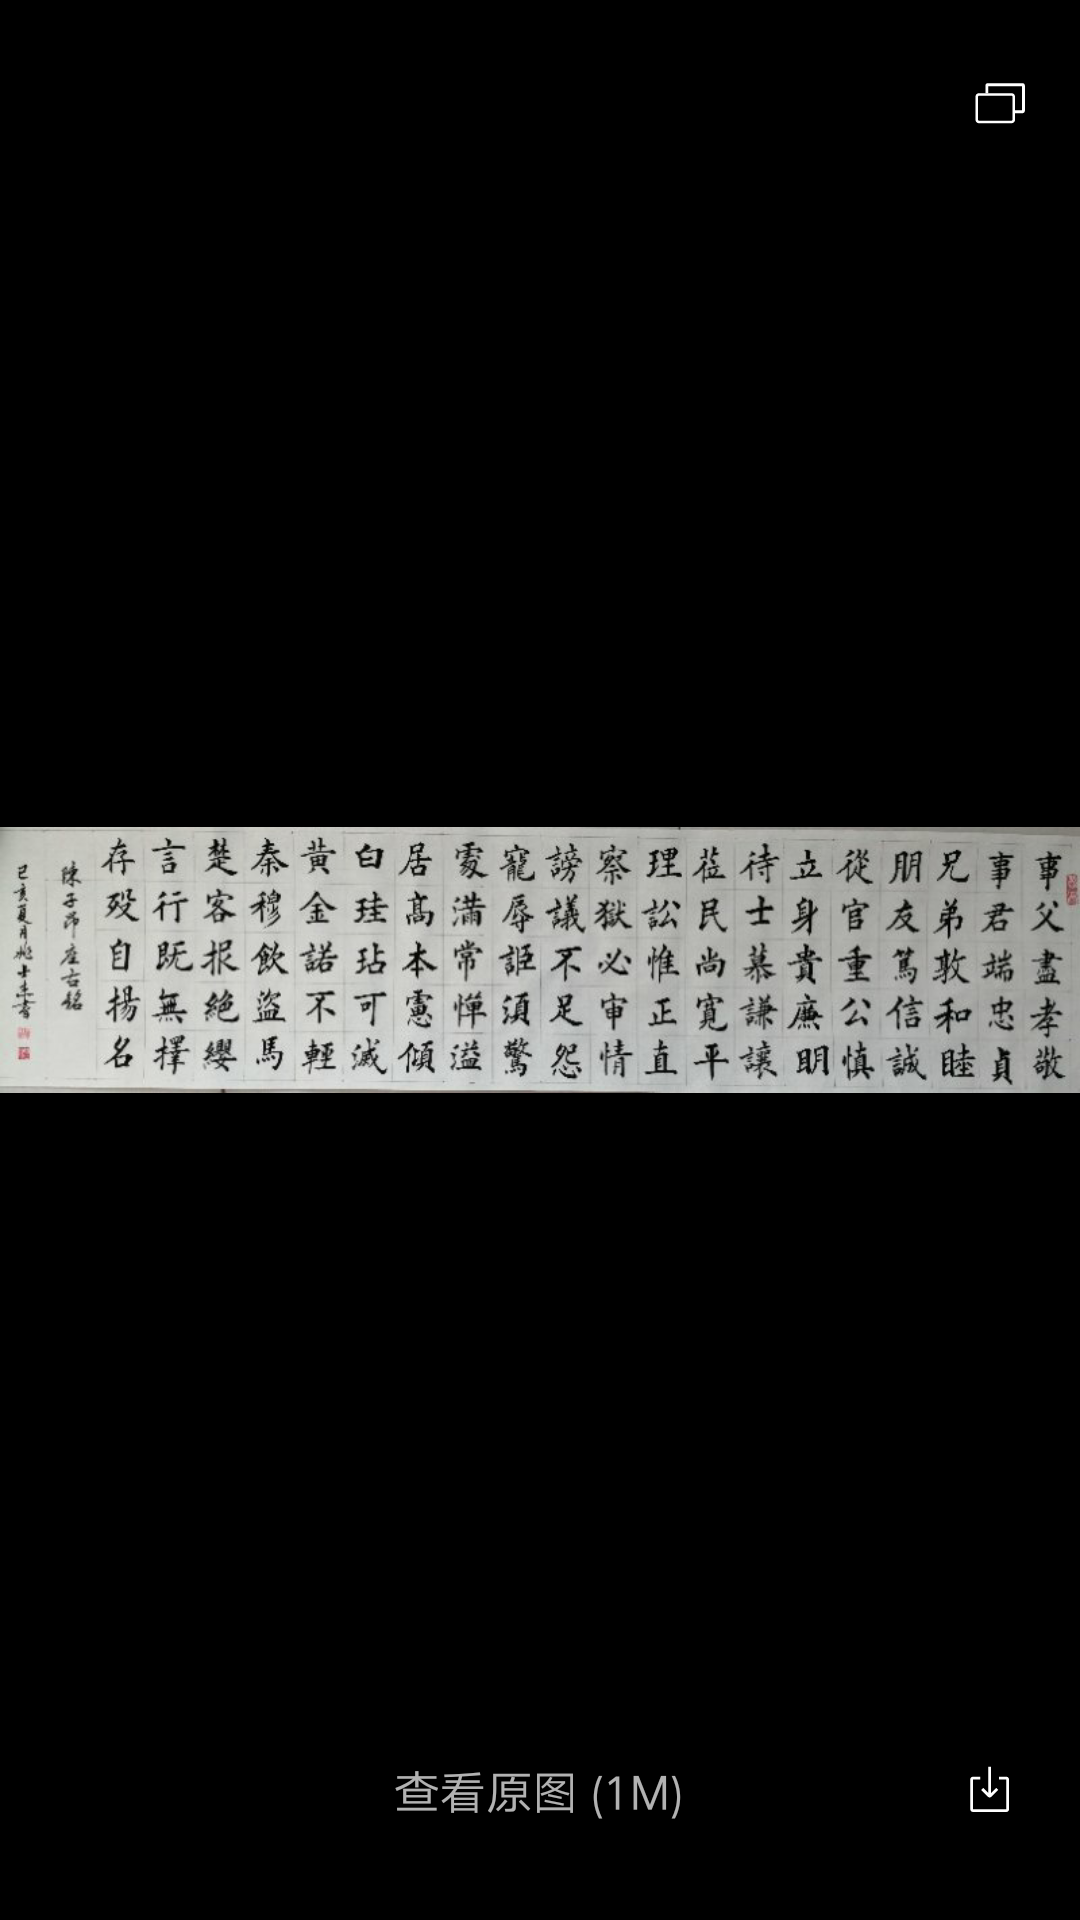 事父盡孝敬
事君端忠貞
兄弟敦和睦
朋友篤信誠
從官重公慎
立身貴廉明
待士慕謙讓
莅民尚寬平
理訟惟正直
察獄必审情
謗議不足怨
寵辱詎須驚
處滿常憚溢
居高本慮傾
白珪玷可滅
黄金諾不輕
秦穆飲盜馬
楚客报絕纓
言行既無擇
存殁自揚名
陳子昂座右銘
己亥夏月 士 書
查看原图 (1M)